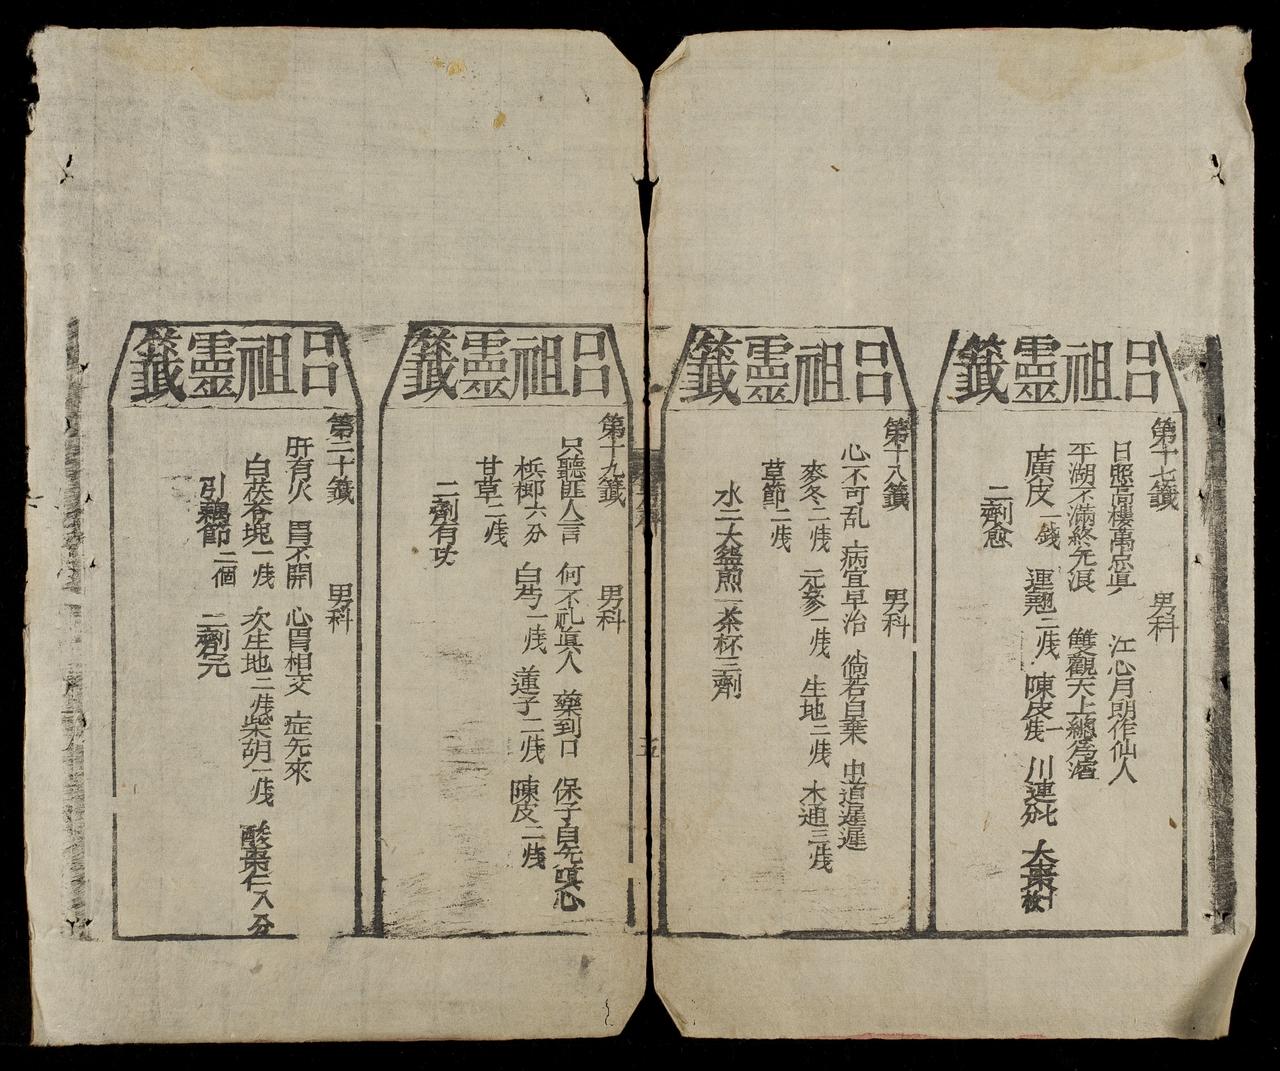 呂祖靈籤
第十七籤 男科
日照高樓萬忘真 江心月明作仙人
平湖不滿終无浪 雙觀天上總為
廣皮一錢 連翹二戔 陳皮一戔 川連 大棗十枚
二劑愈
呂祖靈籤
第十八籤 男科
心不可乱 病宜早治 倘若自棄 虫道遲遲
麥冬二戔 元參一戔 生地二戔 木通三戔
草節二戔
水二大盌煎一茶杯三劑
五
呂祖靈籤
第十九籤 男科
只聽匪人言 何不礼真人 藥到口 保子自无嗔心
梹榔六分 白芍一戔 蓮子二戔 陳皮二戔
甘草二戔
二劑有功
呂祖靈籤
第二十籤 男科
肝有火 胃不開 心胃相交 症无來
白茯苓塊一戔 次生地二戔 柴胡一戔 酸棗仁八分
引藕節二個 二劑元